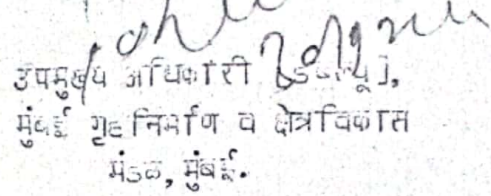 उपमुख्य अधिकारी
मुंबई गृहनिर्माण व क्षेत्रविकास
मंडळ, मुंबई.